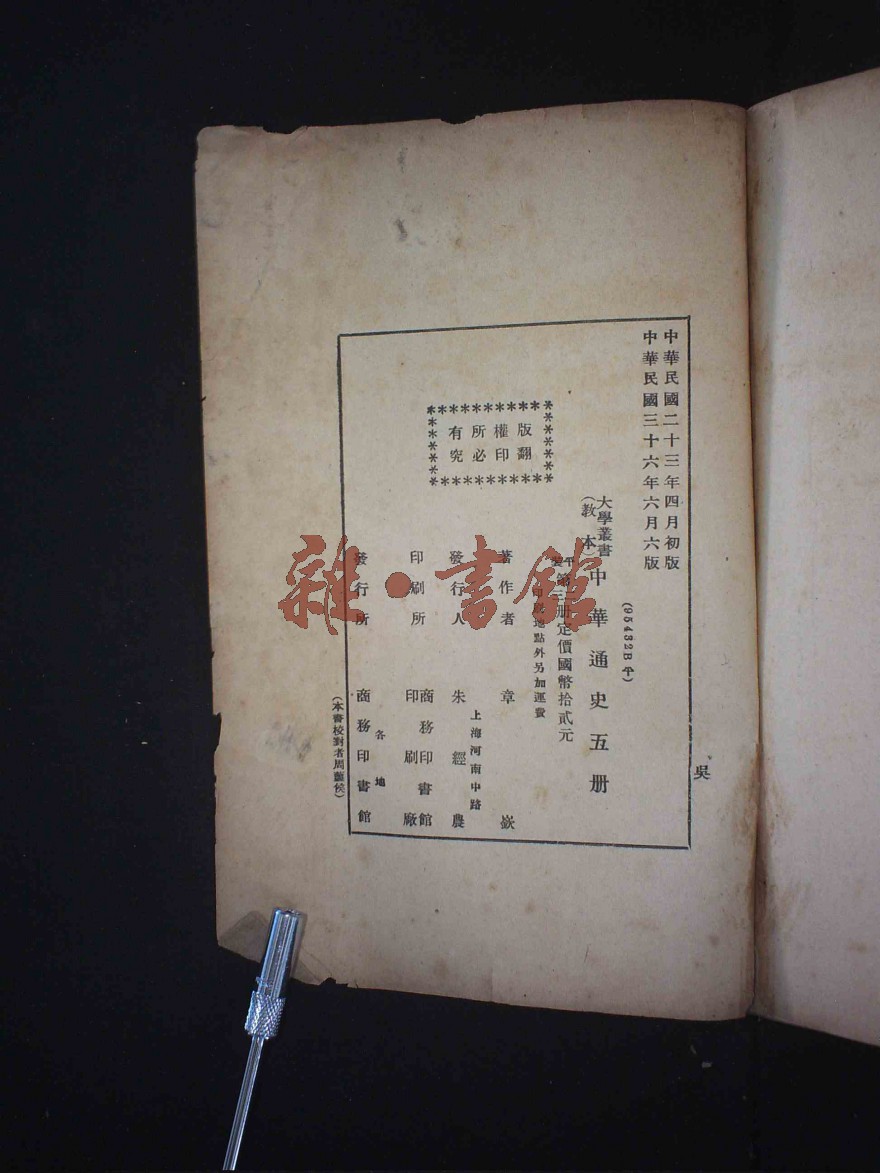 中華民國二十三年四月初版
中華民國三十六年六月六版
(95432B平)
大學叢書
(敎本)
中華通史五册
第三册定價國幣拾貳元
印刷地點外另加運費
版權所有
翻印必究
著作者 章嶔
發行人 朱經農
上海河南中路
印刷所 商務印書館
印刷廠
發行所 商務印書館
各地
(本書校對者周蘭侯)
吳
雜·書館